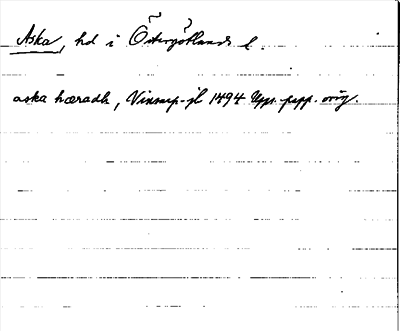 Aska, hd i Östergötlands l.
aska hæradh, 1494 Upps. papp. orig.